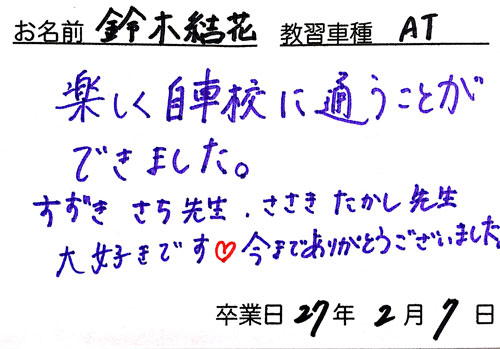 お名前 鈴木結花 教習車種 AT
楽しく自車校に通うことが
できました。
すずき さち先生 . ささき たかし先生
大好きです♡今までありがとうございました
卒業日 27年 2月 7日